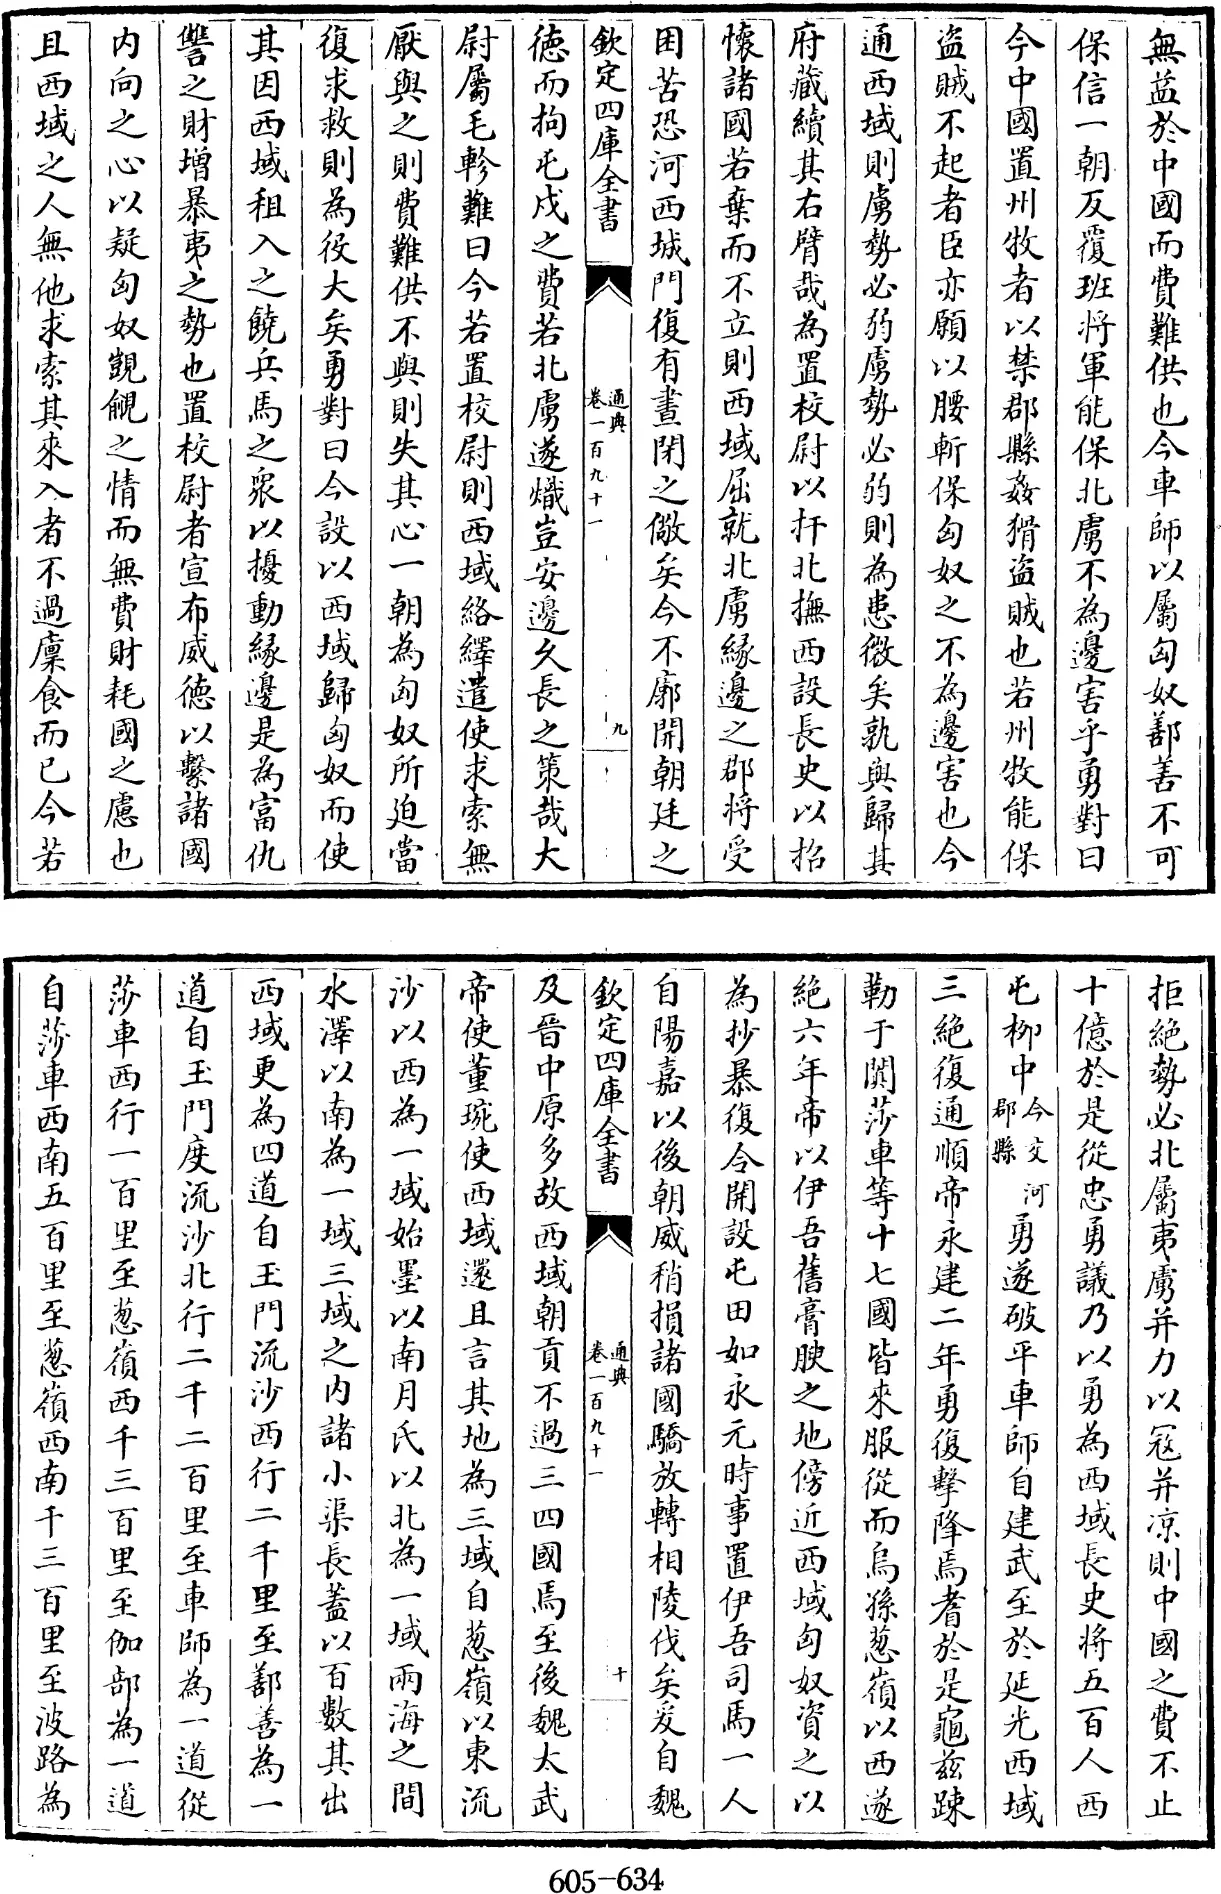 無益於中國而費難供也今車師以屬匈奴鄯善不可
保信一朝反覆班將軍能保北虜不為邊害乎勇對曰
今中國置州牧者以禁郡縣姦猾盗賊也若州牧能保
盗賊不起者臣亦願以腰斬保匈奴之不為邊害也今
通西域則虜勢必弱虜勢必弱則為患微矣孰與歸其
府藏續其右臂哉為置校尉以扞北撫西設長史以招
懷諸國若棄而不立則西域屈就北虜緣邊之郡將受
困苦恐河西城門復有晝閉之儆矣今不廓開朝廷之
欽定四庫全書
通典
卷一百九十一
九
徳而拘屯戍之費若北虜遂熾豈安邊久長之策哉大
尉屬毛軫難曰今若置校尉則西域絡繹遣使求索無
厭與之則費難供不與則失其心一朝為匈奴所迫當
復求救則為役大矣勇對曰今設以西域歸匈奴而使
其因西域租入之饒兵馬之衆以擾動緣邊是為富仇
讐之財增暴夷之勢也置校尉者宣布威徳以繫諸國
内向之心以疑匈奴覬覦之情而無費財耗國之慮也
且西域之人無他求索其來入者不過廪食而已今若
拒絶勢必北屬夷虜并力以冦并凉則中國之費不止
十億於是從忠勇議乃以勇為西域長史將五百人西
屯栁中今交河郡縣勇遂破平車師自建武至於延光西域
三絶復通順帝永建二年勇復擊降焉耆於是龜兹踈
勒于闐莎車等十七國皆來服從而烏孫葱嶺以西遂
絶六年帝以伊吾舊膏腴之地傍近西域匈奴資之以
為抄暴復令開設屯田如永元時事置伊吾司馬一人
自陽嘉以後朝威稍損諸國驕放轉相陵伐矣爰自魏
欽定四庫全書
通典
卷一百九十一
十
及晉中原多故西域朝貢不過三四國焉至後魏太武
帝使董琬使西域還且言其地為三域自葱嶺以東流
沙以西為一域始墨以南月氏以北為一域兩海之間
水澤以南為一域三域之内諸小渠長葢以百數其出
西域更為四道自玉門流沙西行二千里至鄯善為一
道自玉門度流沙北行二千二百里至車師為一道從
莎車西行一百里至葱嶺西千三百里至伽部為一道
自莎車西南五百里至葱嶺西南千三百里至波路為
605-634